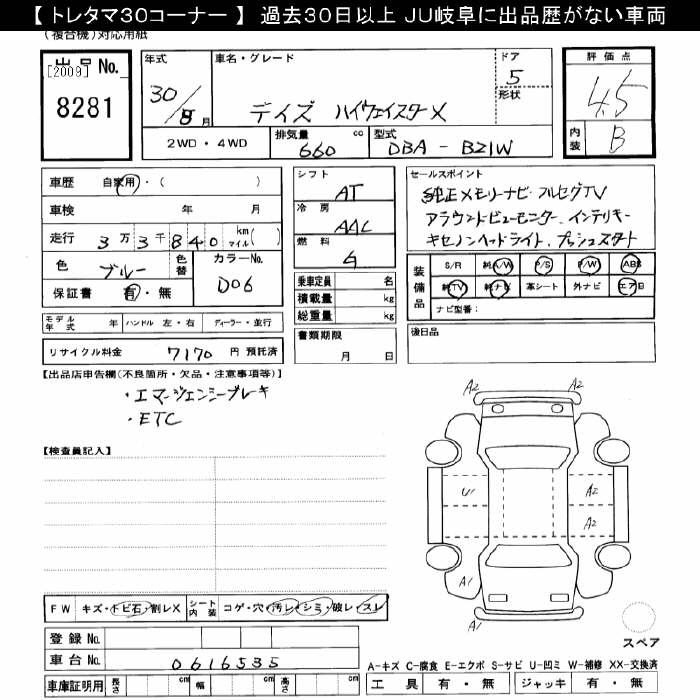 【 トレタマ30コーナー 】 過去30日以上 JU岐阜に出品歴がない車両
(複合機)対応用紙
出品 No.
[2009]
8281
年式
30/8月
車名・グレード
デイズ ハイウェイスターX
ドア
5
形状
評価点
4.5
内装
B
2WD・4WD
排気量 cc
660
型式
DBA - B21W
車歴 自家用・( )
車検 年 月
走行 3万3千840 km マイル( )
色 ブルー
色替
カラーNo.
D06
保証書 有・無
シフト
AT
冷房
AAC
燃料
G
乗車定員 名
積載量 kg
総重量 kg
セールスポイント
純正メモリーナビ・フルセグTV
アラウンドビューモニター、インテリキー
キセノンヘッドライト、プッシュスタート
装備品
S/R 純A/W P/S P/W ABS
純TV 純ナビ 革シート 外ナビ エアB
ナビ型番:
モデル年式 年 ハンドル 左・右 ディーラー・並行
書類期限
月 日
後日品
リサイクル料金 7170 円 預託済
【出品店申告欄(不良箇所・欠品・注意事項等)】
・エマージェンシーブレーキ
・ETC
【検査員記入】
A2 A2
U1 A2
A2
A1 A2
A1
スペア
FW キズ・トビ石・割レX
シート内装 コゲ・穴・汚レ・シミ・破レ・スレ
登録 No.
車台 No. 0616535
車庫証明用 長さ cm 幅 cm 高さ cm
A-キズ C-腐食 E-エクボ S-サビ U-凹ミ W-補修 XX-交換済
工具 有・無 ジャッキ 有・無